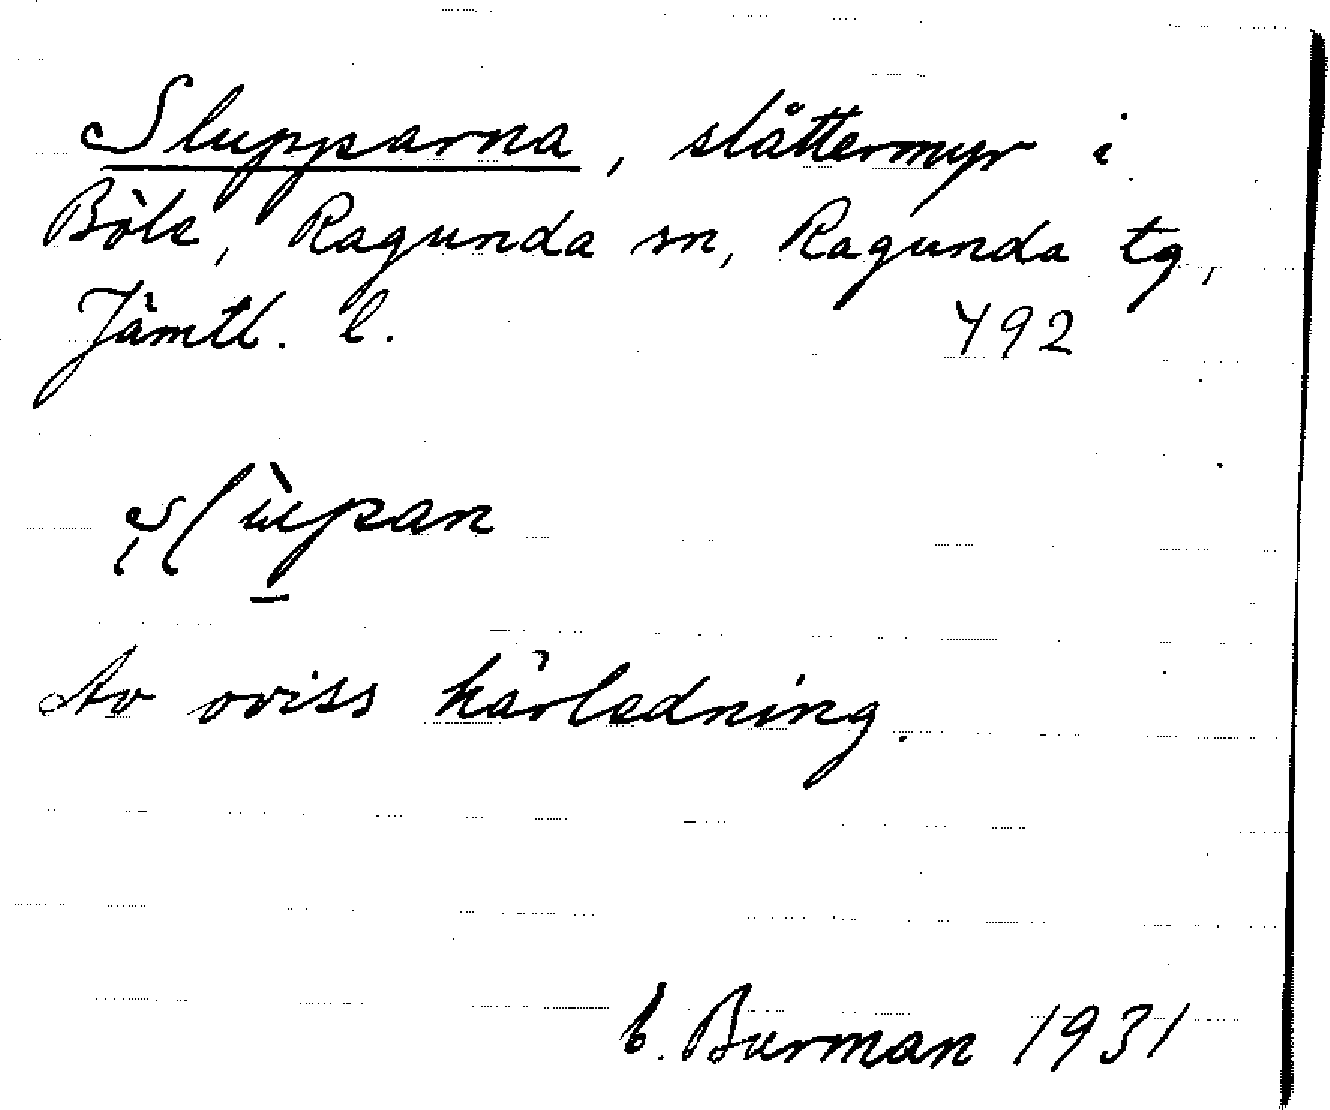 Slupparna, slåttermyr i
Böle, Ragunda sn, Ragunda tg,
Jämtl. l. 492
Av oviss härledning.
Burman 1931